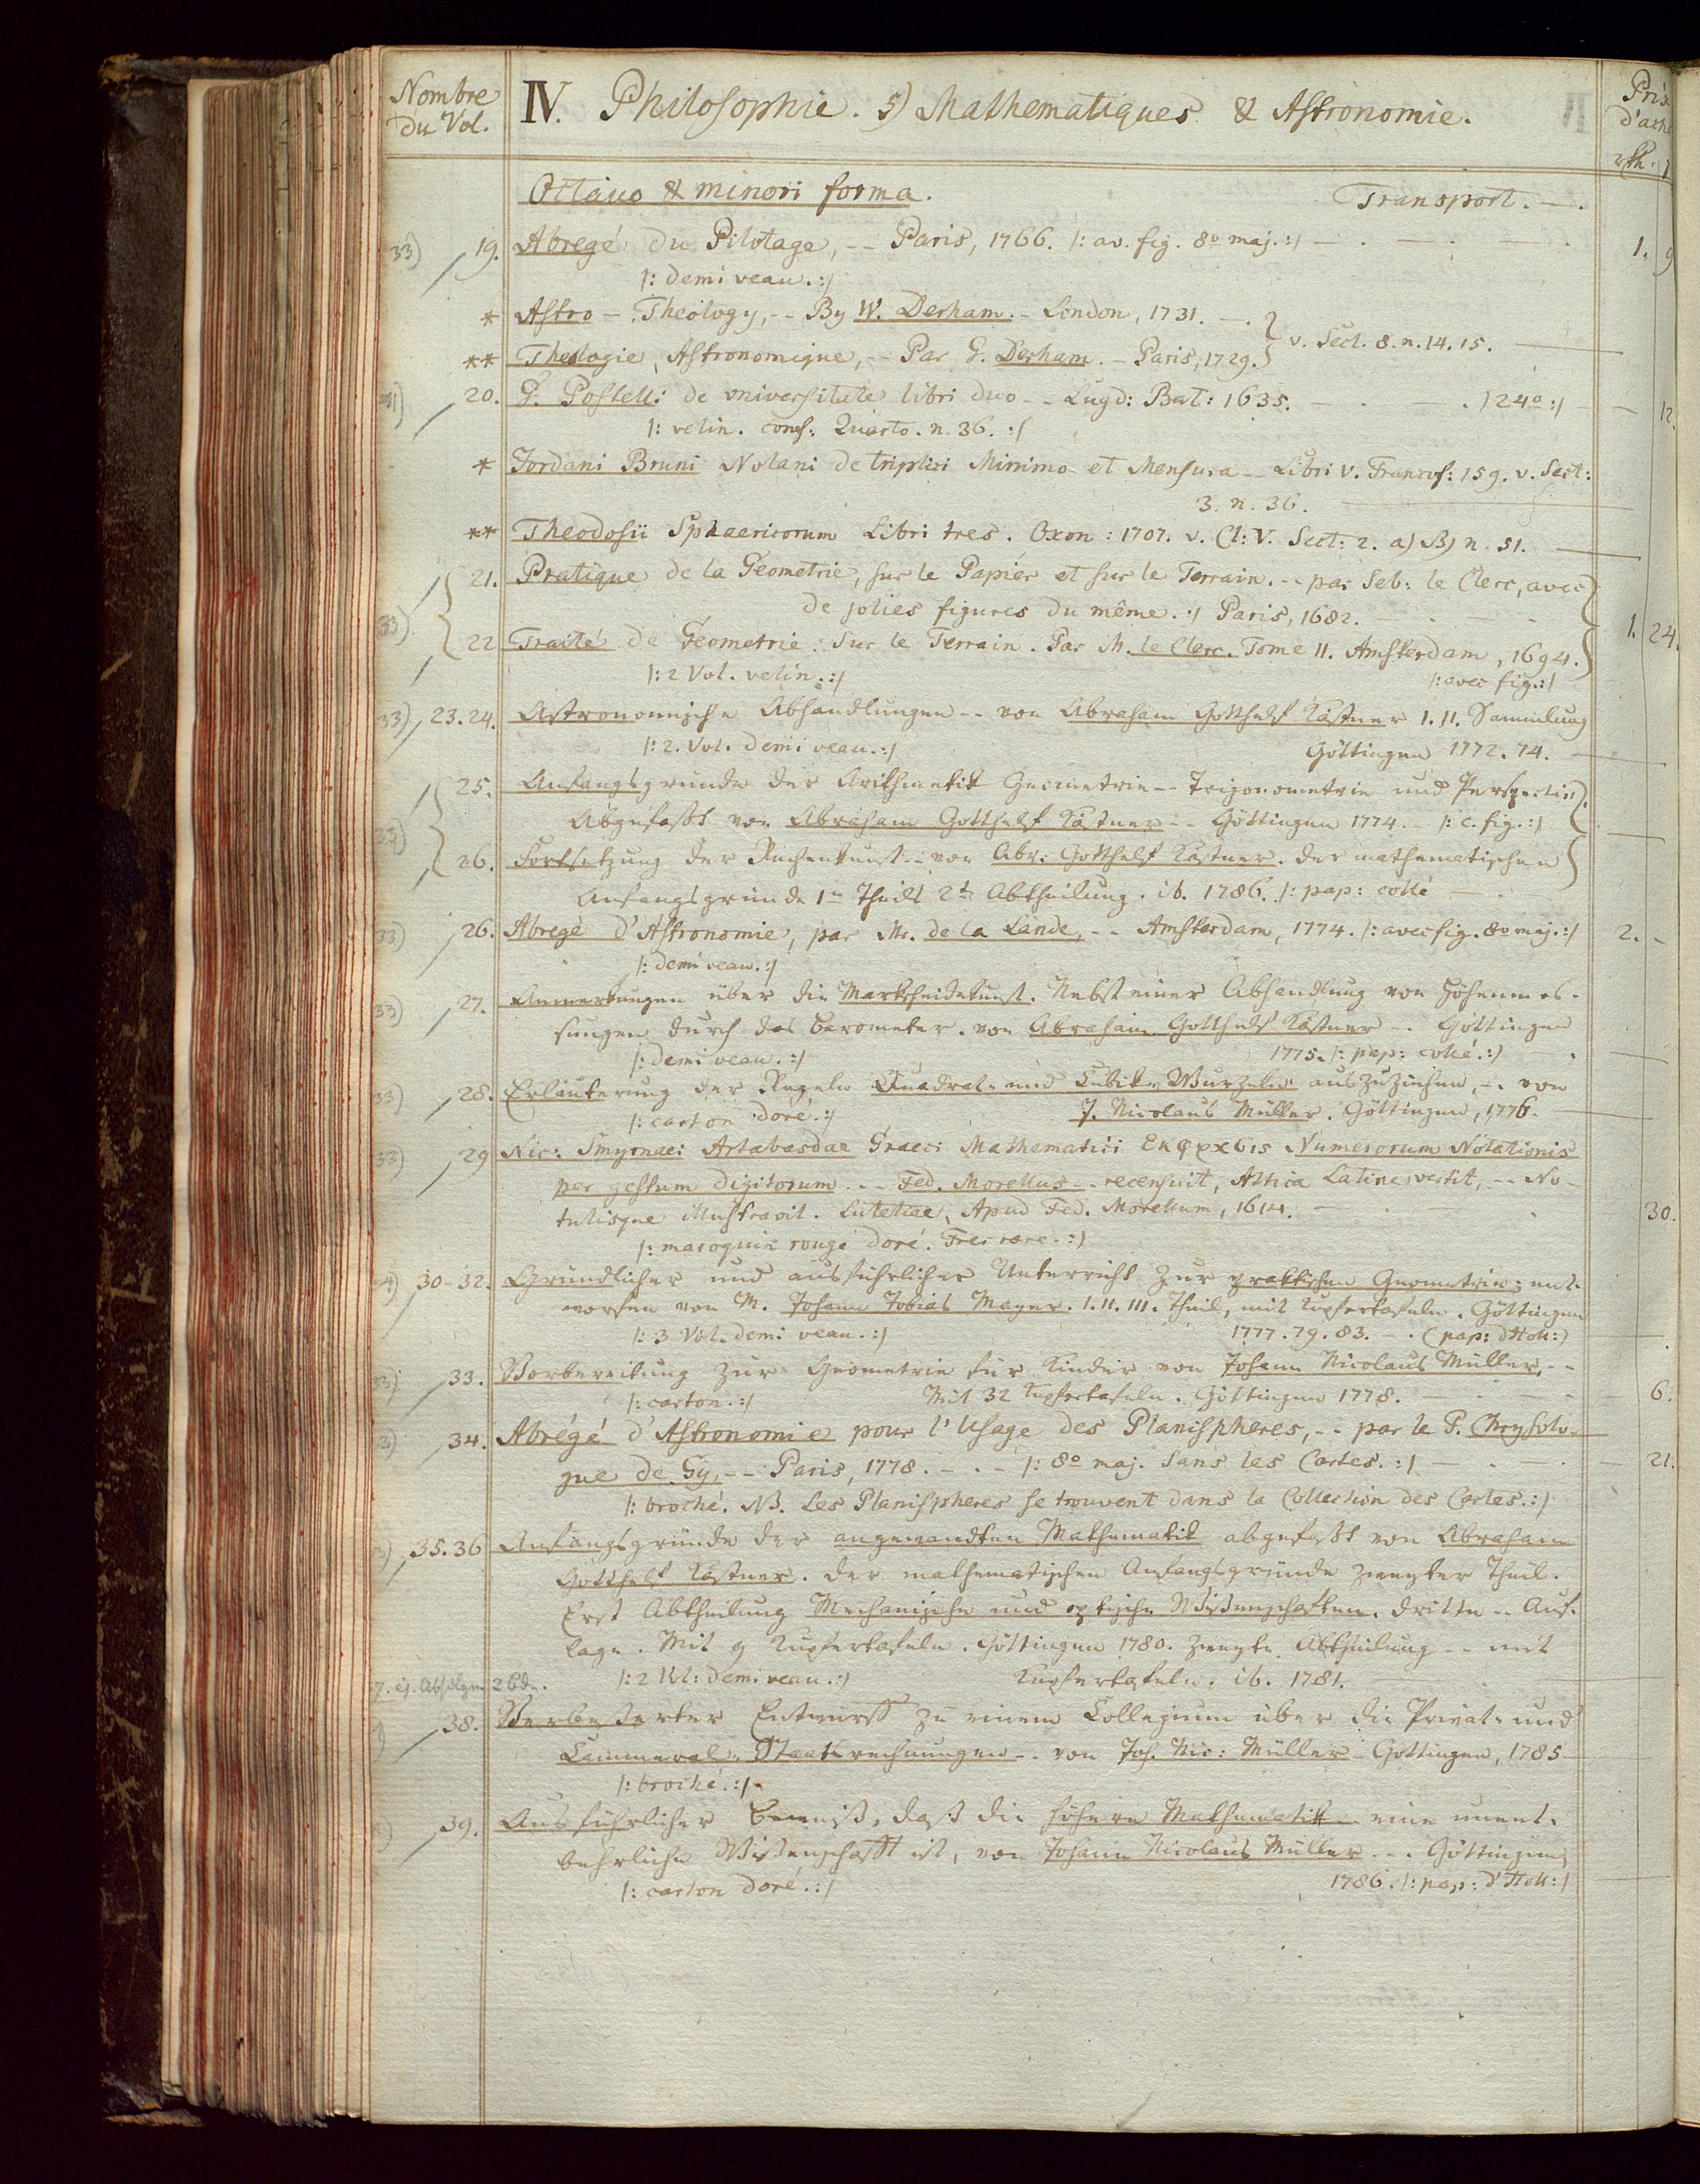 Nombre
du Vol.
IV. Philosophie. 5) Mathematiques & Astronomie.
Prix
d'ach
rth.
Octavo & minori forma. Transport. —.
33) 19. Abregé du Pilotage, -- Paris, 1766. |: av. fig. 8o maj. :| 1. 9
|: demi veau. :|
* Astro-Theology, -- By W. Derham. - London, 1731. —. } v. Sect. 8. n. 14. 15.
** Theologie Astronomique, -- Par G. Derham. - Paris, 1729. }
20. G. Postelli de universitate libri duo -- Lugd: Bat: 1635. — . | 24o :| — 12.
|: velin. conf: Quarto. n. 36. :|
* Jordani Bruni Nolani de triplici Minimo et Mensura -- Libri V. Francof: 159. v. Sect:
3. n. 36.
** Theodosii Sphaericorum Libri tres. Oxon: 1707. v. Cl: V. Sect: 2. a) B) n. 51.
21. Pratique de la Géometrie, sur le Papier et sur le Terrain. -- par Seb: le Clerc, avec
de jolies figures du même. :| Paris, 1682.
33) 1. 24.
22 Traité de Géometrie sur le Terrain. Par M. le Clerc. Tome II. Amsterdam, 1694.
|: 2 Vol. velin. :| |: avec fig. :|
33) 23. 24. Astronomische Abhandlungen -- von Abraham Gotthelf Kästner I. II. Sammlung
|: 2. Vol. demi veau. :| Göttingen 1772. 74.
25. Anfangsgründe der Arithmetik Geometrie -- Trigonometrie und Perspectiv
Abgefaßt von Abraham Gotthelf Kästner -- Göttingen 1774. - |: c. fig. :|
33)
26. Fortsetzung der Rechenkunst -- von Abr: Gotthelf Kästner. der mathematischen
Anfangsgründe 1n Theils 2te Abtheilung. ib. 1786. |: pap: collé
33) 26. Abregé d'Astronomie, par Mr. de la Lande, -- Amsterdam, 1774. |: avec fig. 8o maj. :| 2. -
|: demi veau. :|
33) 27. Anmerkungen über die Markscheidekunst. Nebst einer Abhandlung von Höhenmes-
sungen durch das Barometer. von Abraham Gotthelf Kästner -. Göttingen
|: demi veau. :| 1775. |: pap: collé. :|
33) 28. Erläuterung der Regeln Quadrat- und Cubik-Wurzeln auszuziehen, -. von
|: carton doré. :| J. Nicolaus Müller. Göttingen, 1776.
33) 29 Nic: Smyrnaei Artabasdae Graeci Mathematici Εκφρασις Numerorum Notationis
per gestum digitorum. -- Fed. Morellus -- recensuit, Attica Latine vertit, -- No-
tulisque illustravit. Lutetiae, Apud Fed. Morellum, 1614. 30.
|: maroquin rouge doré. Tres rare. :|
30-32. Gründlicher und ausführlicher Unterricht zur praktischen Geometrie; ent-
worfen von M. Johann Tobias Mayer. I. II. III. Theil, mit Kupfertafeln. Göttingen
|: 3 Vol. demi veau. :| 1777. 79. 83. -. (pap: d'Holl:)
33) 33. Vorbereitung zur Geometrie für Kinder von Johann Nicolaus Müller, --
|: carton. :| Mit 32 Kupfertafeln. Göttingen 1778. 6.
34. Abrégé d'Astronomie pour l'Usage des Planispheres, -- par le P. Chrysolo-
gue de Gy, -- Paris, 1778. -. - |: 8o maj. sans les Cartes. :| 21.
|: broché. NB. Les Planispheres se trouvent dans la Collection des Cartes. :|
35. 36 Anfangsgründe der angewandten Mathematik abgefaßt von Abraham
Gotthelf Kästner. der mathematischen Anfangsgründe zweyter Theil.
Erst Abtheilung Mechanische und optische Wißenschaften. dritte -- Auf-
lage. Mit 9 Kupfertafeln. Göttingen 1780. zweyte Abtheilung -- mit
|: 2 Vol: demi veau. :| Kupfertafeln. ib. 1781.
38. Verbeßerter Entwurff zu einem Collegium über die Privat- und
Cammeral-Staatsrechnungen -. von Joh. Nic: Müller - Göttingen, 1785
|: broché. :|
39. Ausführlicher Beweiß, daß die höhere Mathematik eine unent-
behrliche Wißenschafft ist, von Johann Nicolaus Müller -.. Göttingen,
|: carton doré. :| 1786. |: pap: d'Holl: |